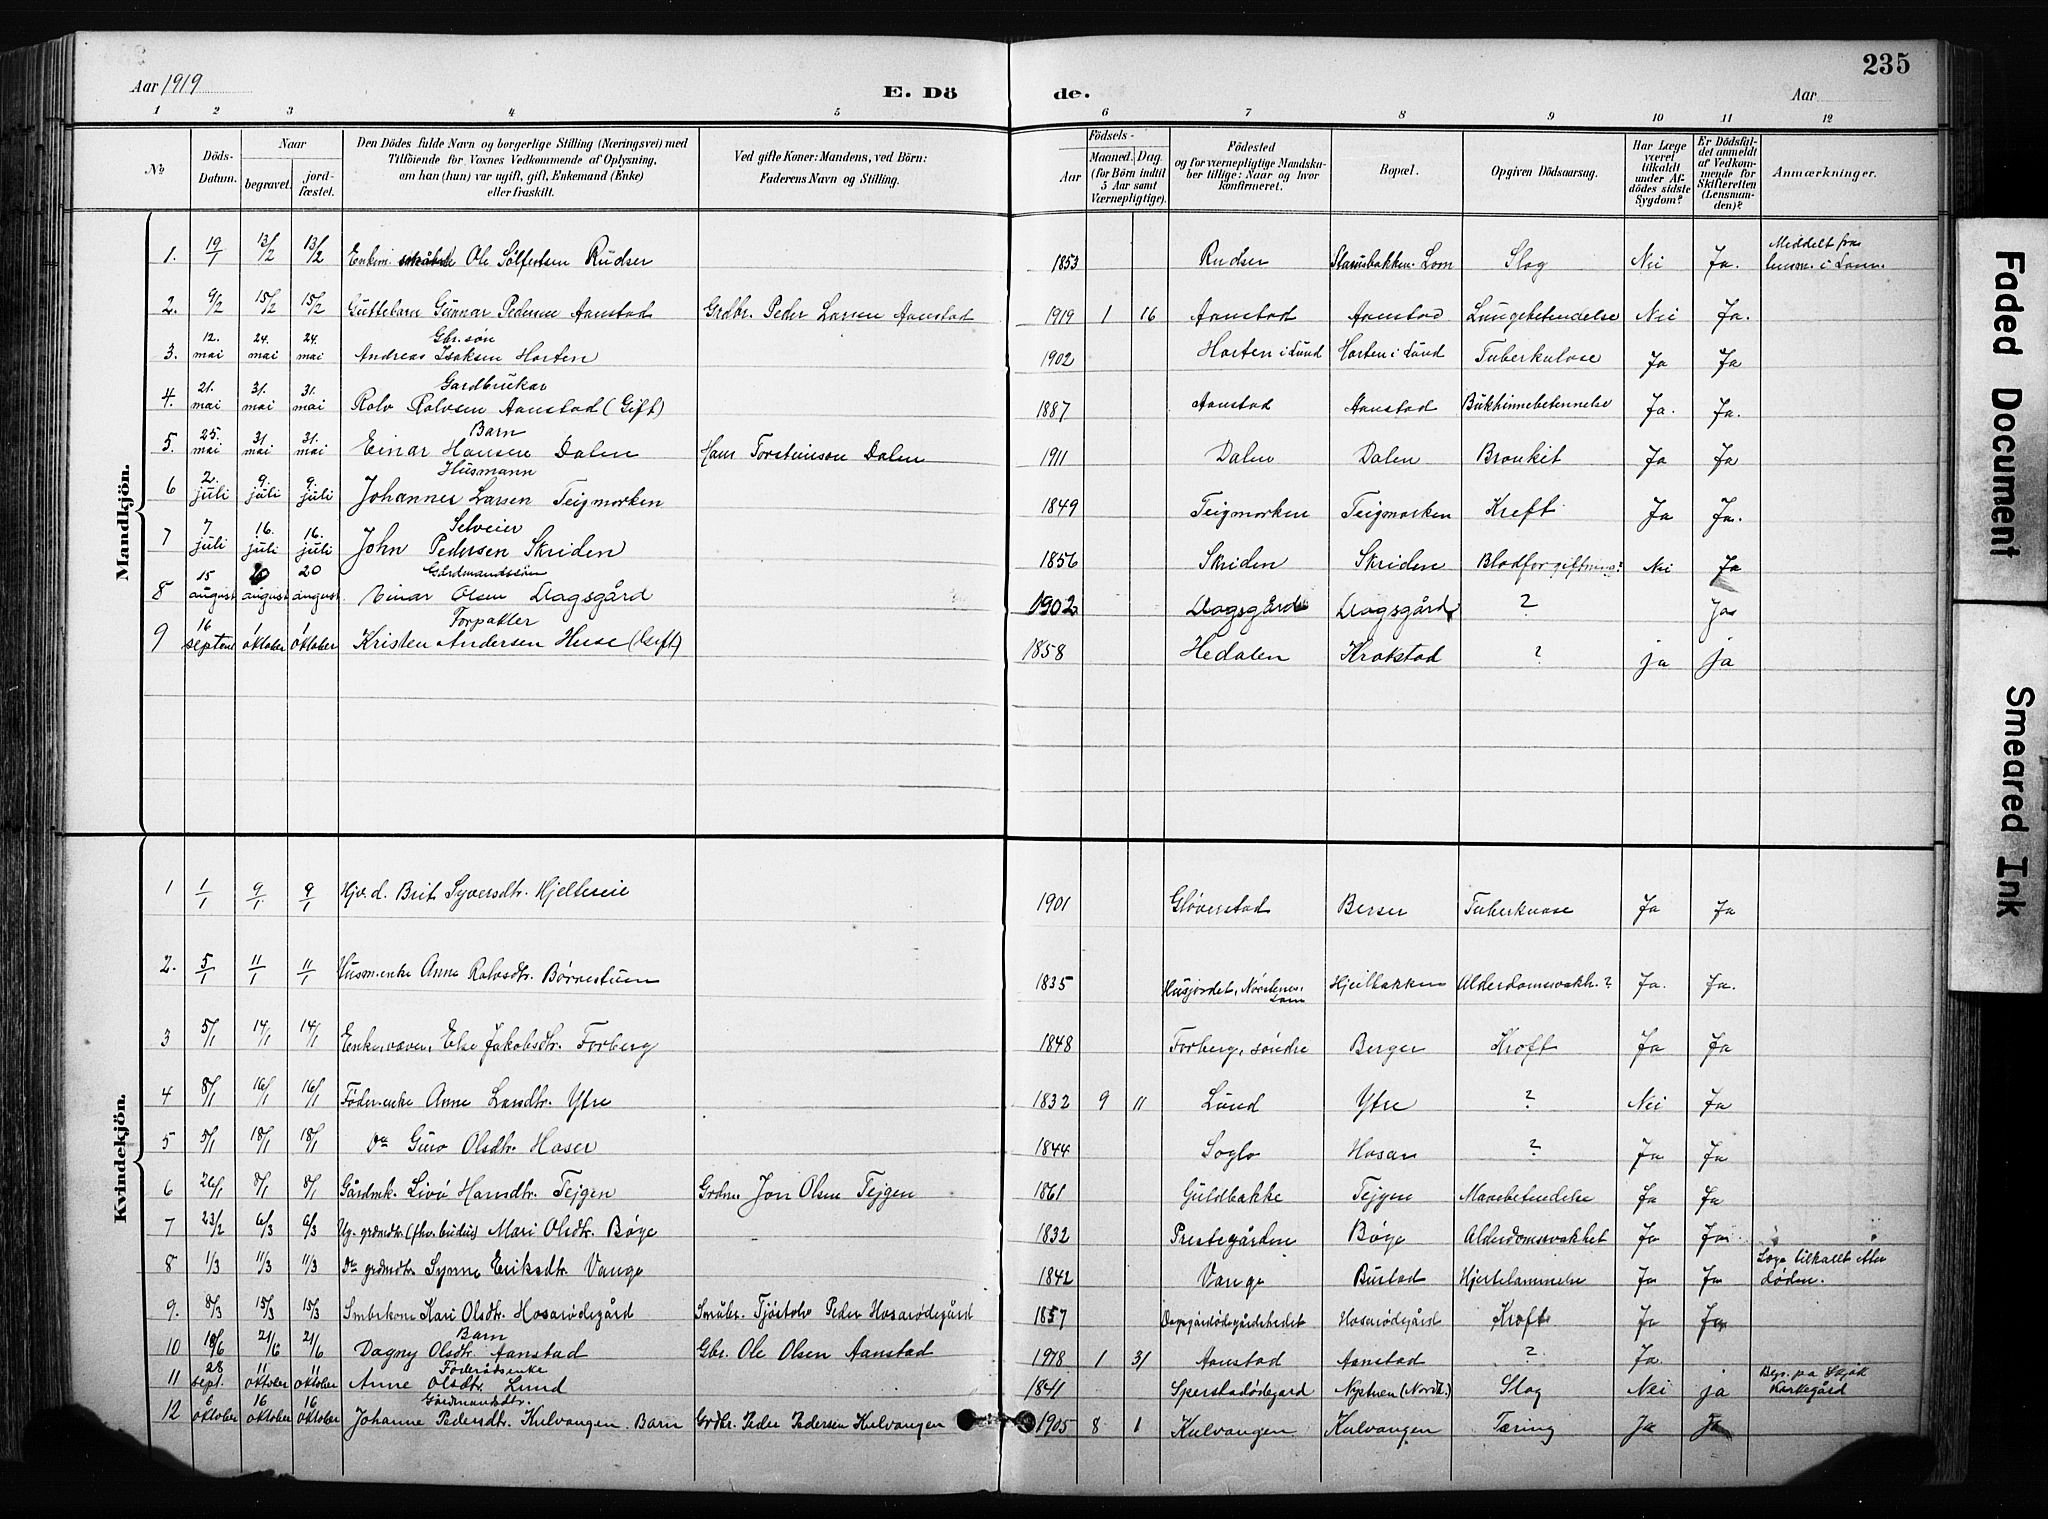 235
Aar 1919
E. Dö
de.
Aar
1 2 3 4 5 6 7 8 9 10 11 12
No
Döds-Datum.
Naar
begravet.
jord-fæstet.
Den Dödes fulde Navn og borgerlige Stilling (Næringsvei) med
Tilföiende for Voxnes Vedkommende af Oplysning,
om han (hun) var ugift, gift, Enkemand (Enke)
eller fraskilt.
Ved gifte Koner: Mandens, ved Börn:
Faderens Navn og Stilling.
Födsels-
Aar
Maaned. Dag.
(for Börn indtil
5 Aar samt
Værnepligtige).
Födested
og for værnepligtige Mandsku-
ber tillige: Naar og hvor
konfirmeret.
Bopæl.
Opgiven Dödsaarsag.
Har Læge
været
tilkaldt
under Af-
dödes sidste
Sygdom?
Er Dödsfal-
det anmeldt
af Vedkom-
mende for
Skifteretten
(Lensman-
den)?
Anmærkninger.
Mandkjön.
1. 19/1 13/2 13/2 Enkem. Ole Sölfestsen Rudser 1853 Rudser Lom Slag Nei Ja. Meddelt fra
lensm. i Lom.
2. 9/2 15/2 15/2 Guttebarn Gunnar Pedersen Aanstad Grdbr. Peder Larsen Aanstad 1919 1 16 Aanstad Aanstad Lungebetendelse Nei Ja.
3. 12. mai 24. mai 24. mai Gbr. søn
Andreas Isaksen Horten 1902 Horten i Lund Horten i Lund Tuberkulose Ja Ja
4. 21. mai 31. mai 31. mai Gardbrukar
Rolv Rolvsen Aanstad (Gift) 1887 Aanstad Aanstad Bukhinnebetennelse Ja. Ja.
5. 25. mai 31. mai 31. mai Barn
Einar Hansen Dalen Hans Torsteinson Dalen 1911 Dalen Dalen Bronkit Ja Ja
6 2. juli 9. juli 9. juli Husmann
Johannes Larsen Teigmorken 1849 Teigmorken Teigmorken Kreft Ja Ja.
7 7 juli 16. juli 16. juli Selveier
John Pedersen Skriden 1856 Skriden Skriden Blodforgiftning? Nei Ja
8 15 august 20 august 20 august Gårdmandssøn
Einar Olsen Dagsgård 1902 Dagsgård Dagsgård ? Ja
9 16 septem 1 oktober 1 oktober Forpakter
Kristen Andersen Huse (Gift) 1858 Hedalen Krokstad ? ja ja
Kvindekjön.
1 1/1 9/1 9/1 Hjv. d. Brit Syversdtr. Hjelteseie 1901 Gløverstad Berser Tuberkulose Ja Ja
2. 5/1 11/1 11/1 Husm.enke Anne Rolvsdtr. Børrestuen 1835 Husjordet, Lom Hjeilbakken Alderdomssvakh.? Ja. Ja.
3 5/1 14/1 14/1 Enke, Else Jakobsdtr. Forberg 1848 Forberg, søndre Berger Kreft Ja Ja
4 8/1 16/1 16/1 Føder.enke Anne Larsdtr. Ytre 1832 9 11 Lund Ytre ? Nei Ja
5 5/1 18/1 18/1 Do Guro Olsdtr. Hoser 1844 Soglo Hosar ? Ja Ja
6 26/1 8/1 8/1 Gårdmk. Livø Hansdtr. Tejgen Grdm. Jon Olsen Tejgen 1861 Guldbakke Tejgen Mavebetendelse Ja Ja
7 23/2 6/3 6/3 Ug. grdmdtr. Mari Olsdtr. Bøge 1832 Prestegården Bøge Alderdomssvakhet Ja Ja
8 1/3 11/3 11/3 Do grdmdtr. Synne Eriksdtr. Vange 1842 Vange Bustad Hjertelammelse Ja Ja Læge tilkallt etter
døden.
9. 8/3 15/3 15/3 Smbr.kone Kari Olsdtr. Hosarødegård Småbr. Tjøstolv Peder Hosarødegård 1857 Hosarødegård Kreft Ja Ja
10 10/6 21/6 21/6 Barn
Dagny Olsdtr. Aanstad Gbr. Ole Olsen Aanstad 1918 1 31 Aanstad Aanstad ? Ja
11 28 sept. 11 oktober 11 oktober Føderådsenke
Anne Olsdtr. Lund 1841 Sperstadødegard Nystuen (Nordb.) Slag Nei ja Begr. pa Skjåk
Kirkegård
12 6 oktober 16 oktober 16 oktober Gårdmandsdtr.
Johanne Pedersdtr. Kulvangen. Barn Grdbr. Peder Pedersen Kulvangen 1905 8 1 Kulvangen Kulvangen Tæring Ja Ja
Faded Document
Smeared Ink